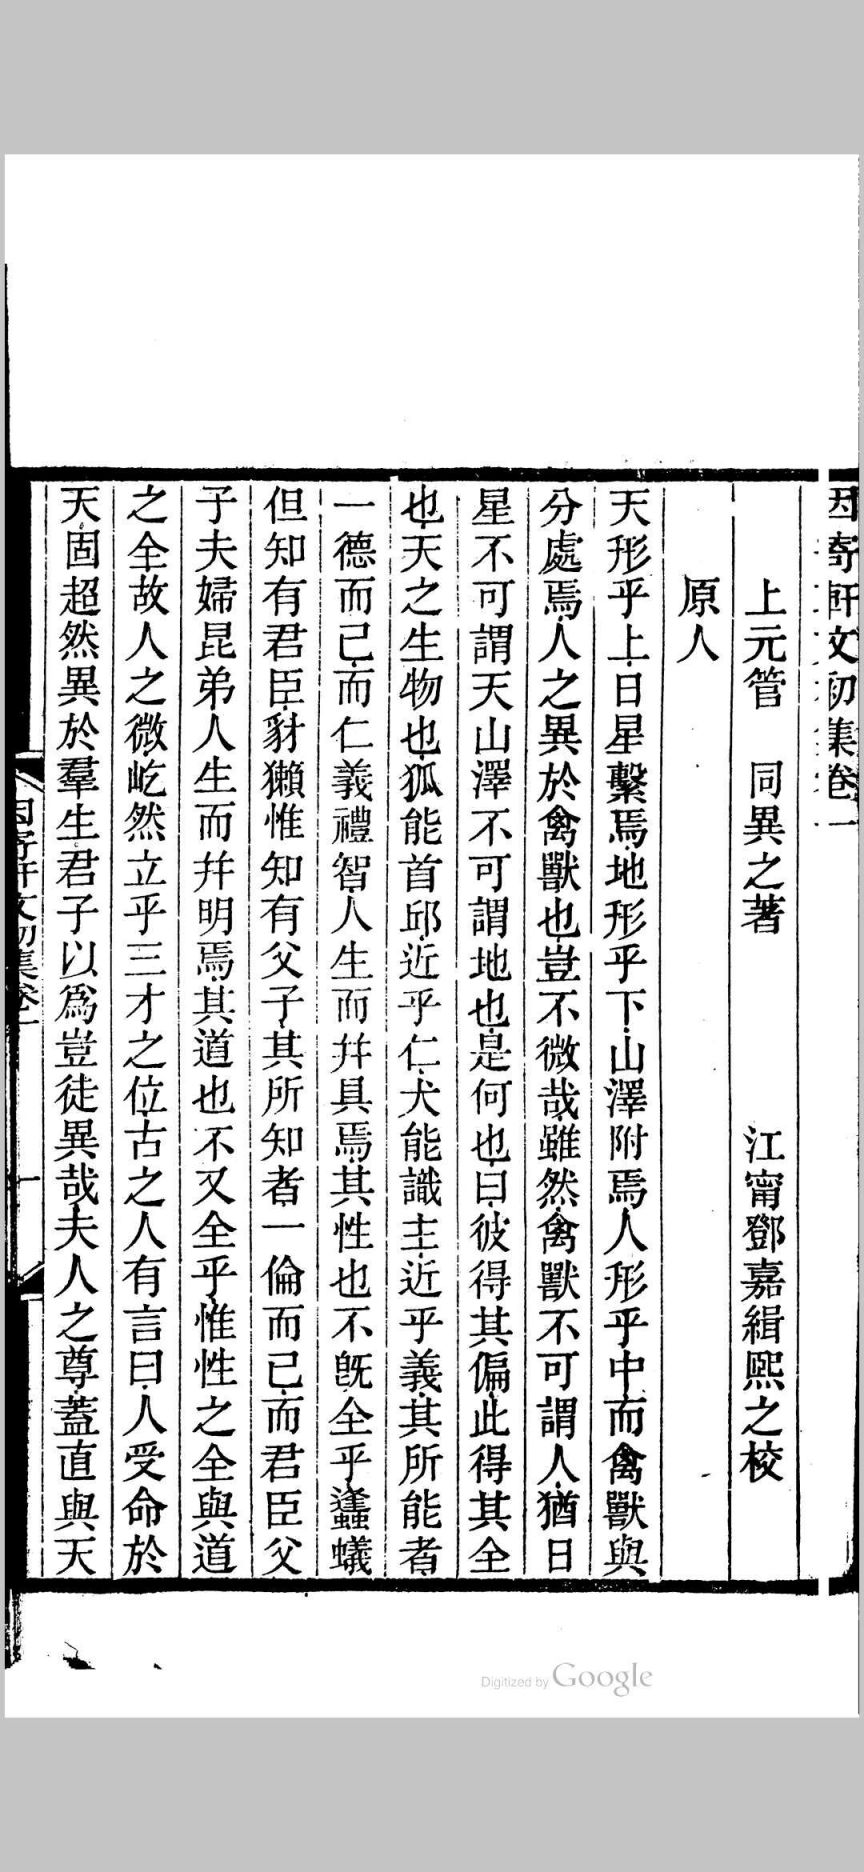 因寄軒文初集卷一
上元管　同異之著　江甯鄧嘉緝熙之校
原人
天形乎上日星繫焉地形乎下山澤附焉人形乎中而禽獸與
分處焉人之異於禽獸也豈不微哉雖然禽獸不可謂人猶日
星不可謂天山澤不可謂地也是何也曰彼得其偏此得其全
也天之生物也狐能首邱近乎仁犬能識主近乎義其所能者
一德而已而仁義禮智人生而幷具焉其性也不旣全乎蠭蟻
但知有君臣豺獺惟知有父子其所知者一倫而已而君臣父
子夫婦昆弟人生而幷明焉其道也不又全乎惟性之全與道
之全故人之微屹然立乎三才之位古之人有言曰人受命於
天固超然異於羣生君子以爲豈徒異哉夫人之尊蓋直與天
因寄軒文初集卷一
一
Digitized by Google